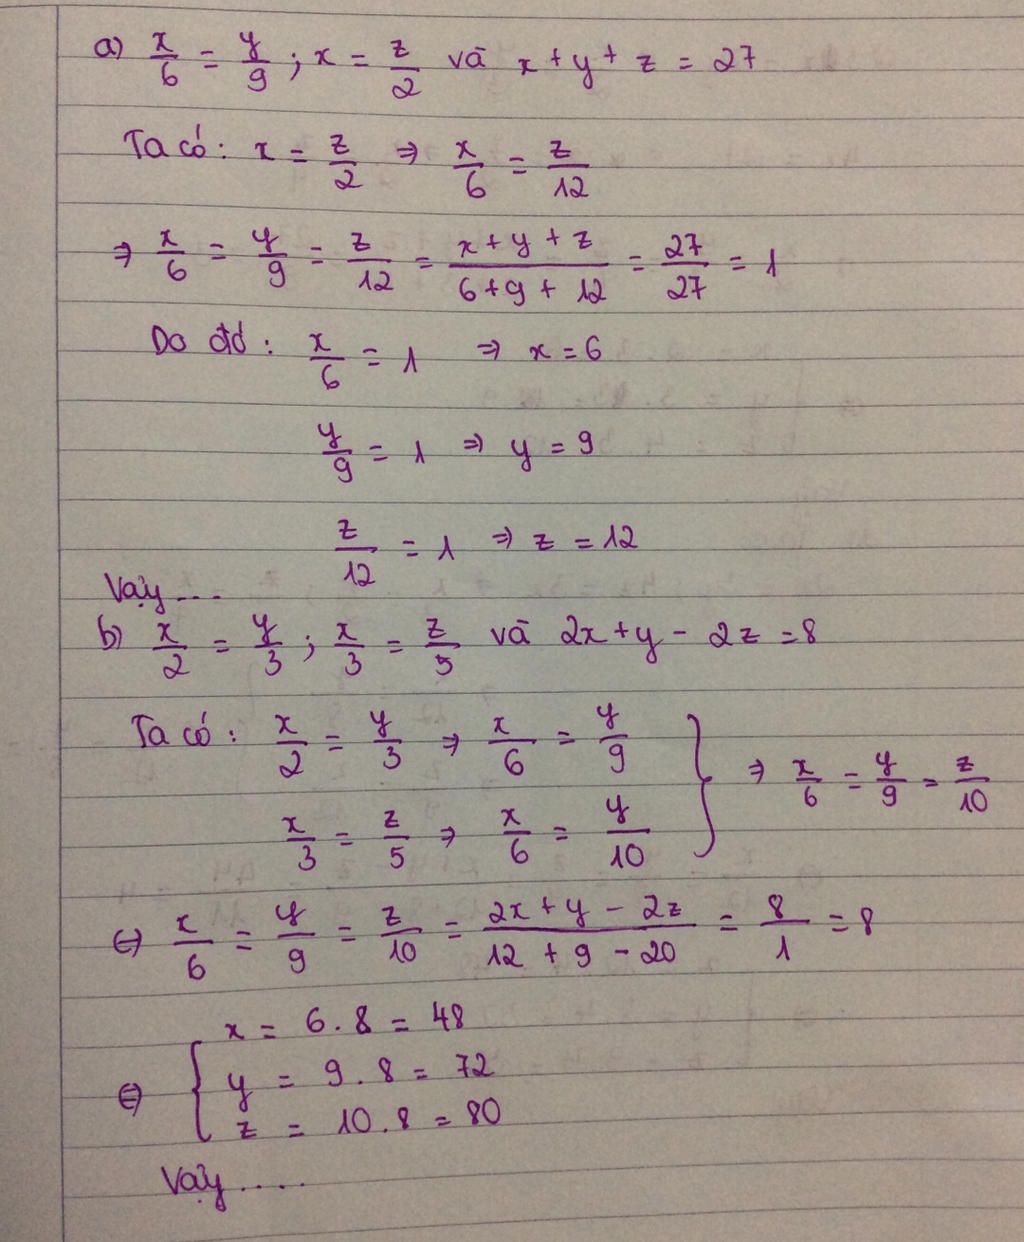 a) x/6 = y/9 ; x = z/2 và x + y + z = 27
Ta có : x = z/2 => x/6 = z/12
=> x/6 = y/9 = z/12 = (x + y + z)/(6 + 9 + 12) = 27/27 = 1
Do đó : x/6 = 1 => x = 6
y/9 = 1 => y = 9
z/12 = 1 => z = 12
Vậy ...
b) x/2 = y/3 ; x/3 = z/5 và 2x + y - 2z = 8
Ta có : x/2 = y/3 => x/6 = y/9
x/3 = z/5 => x/6 = y/10 } => x/6 = y/9 = z/10
<=> x/6 = y/9 = z/10 = (2x + y - 2z)/(12 + 9 - 20) = 8/1 = 8
<=> { x = 6 . 8 = 48
y = 9 . 8 = 72
z = 10 . 8 = 80
Vậy ....